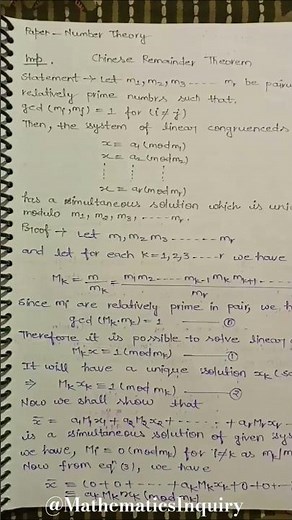 Paper - Number Theory
Imp. Chinese Remainder Theorem
Statement → Let m₁, m₂, m₃ ..... mᵣ be pair
relatively prime numbrs such that.
gcd (mᵢ, mⱼ) = 1 for (i ≠ j)
Then, the system of linear congruenceds
x ≡ a₁ (mod m₁)
x ≡ a₂ (mod m₂)
⋮ ⋮ ⋮
x ≡ aᵣ (mod mᵣ)
has a simultaneous solution which is uni
modulo m₁, m₂, m₃, ..... mᵣ.
Proof → Let m₁ m₂ m₃ ....... mᵣ
and let for each k = 1, 2, 3 .... r we have
Mₖ = m/mₖ = m₁ m₂ ..... mₖ₋₁ mₖ mₖ₊₁ .../mᵣ
Since mᵢ are relatively prime in pair, we h
gcd (Mₖ, mₖ) = 1
Therefore it is possible to solve linear
Mₖx ≡ 1 (mod mₖ) — ①
It will have a unique solution xₖ (
⇒ Mₖxₖ ≡ 1 (mod mₖ) — ②
Now we shall show that
x̄ = a₁M₁x₁ + a₂M₂x₂ + ...... + aᵣMᵣxᵣ
is a simultaneous solution of given sys
we have, Mᵢ ≡ 0 (mod mₖ) for i ≠ k as mₖ/m
Now from eqⁿ (3), we have
x̄ = (0 + 0 + ... + aₖMₖxₖ + 0 + 0 + ...
x̄ ≡ aₖMₖxₖ (mod mₖ)
@MathematicsInquiry